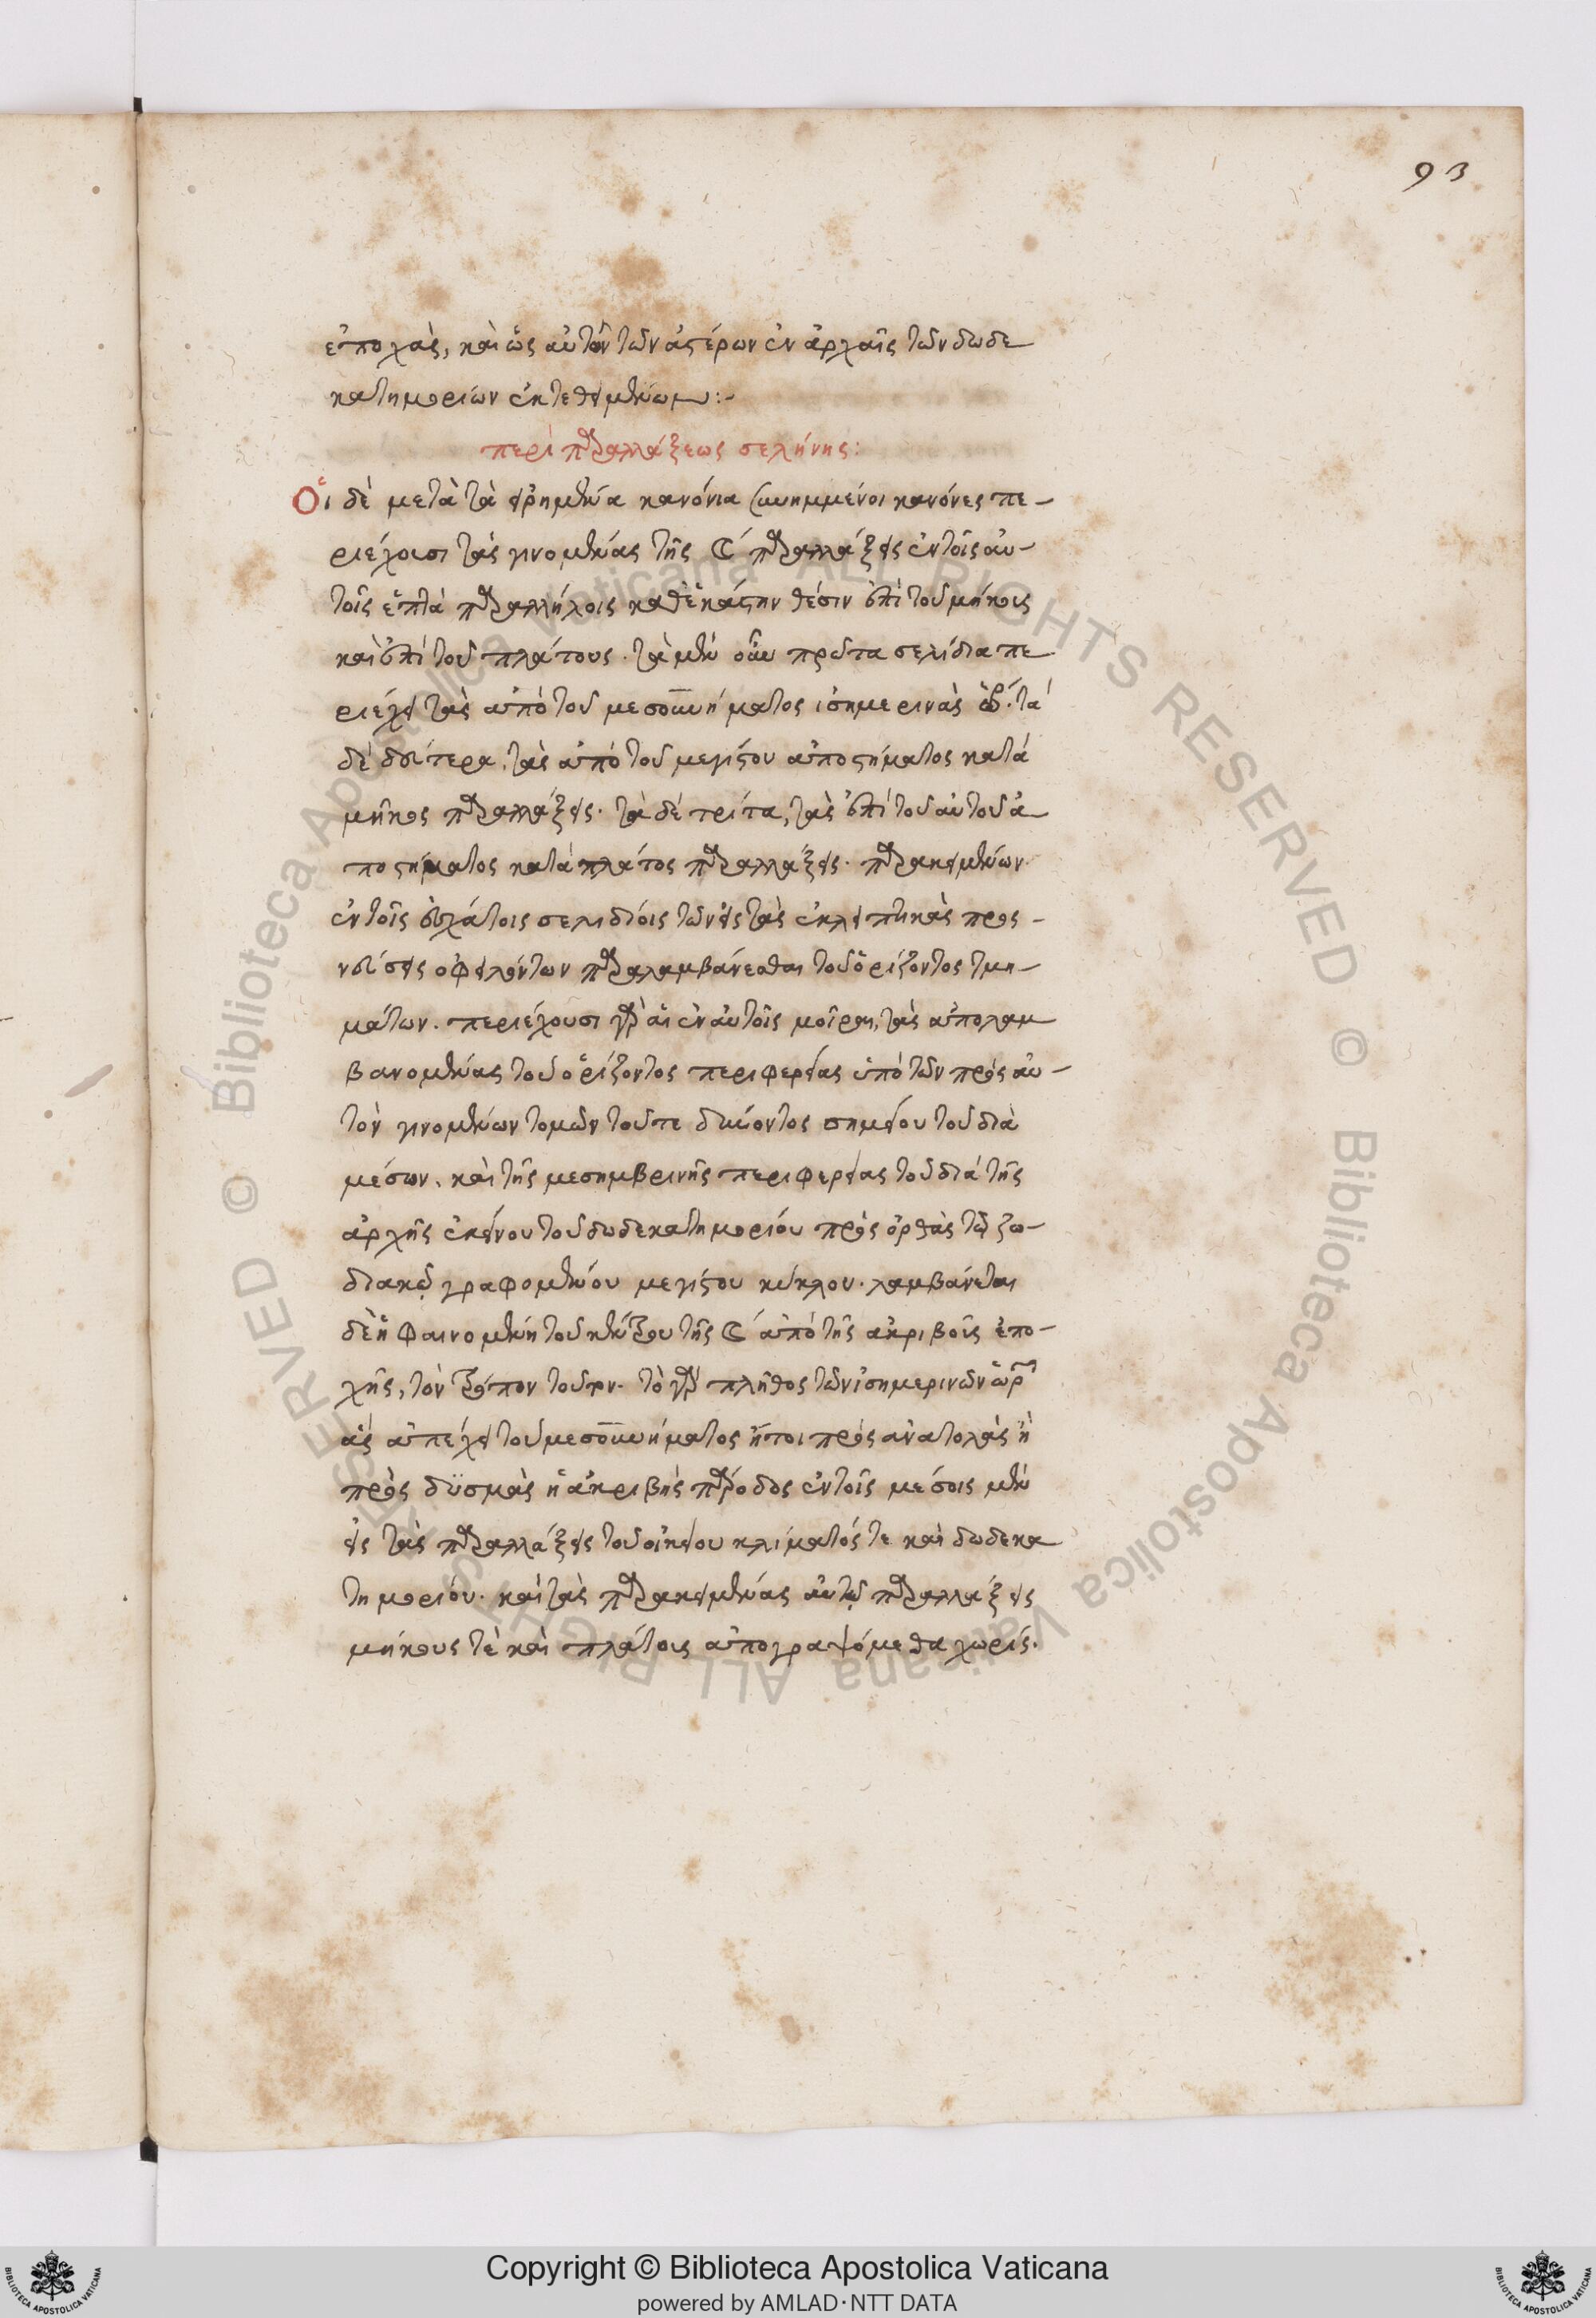 93
ἐποχὰς, καὶ ὡς αὐτῶν τῶν ἀστέρων ἐν ἀρχαῖς τῶν δωδε
κατημορίων ἐκτεθειμένων:-
περὶ παραλλάξεως σελήνης:
Οἱ δὲ μετὰ τὰ εἰρημένα κανόνια συνημμένοι κανόνες πε-
ριέχουσι τὰς γινομένας τῆς ☾ παραλλάξεις ἐν τοῖς αὐ-
τοῖς ἑπτὰ παραλλήλοις καθ' ἑκάστην θέσιν ἐπὶ τοῦ μήκους
καὶ ἐπὶ τοῦ πλάτους. τὰ μὲν οὖν πρῶτα σελίδια πε
ριέχει τὰς ἀπὸ τοῦ μεσουρανήματος ἰσημερινὰς ὥρ. τὰ
δὲ δεύτερα, τὰς ἀπὸ τοῦ μεγίστου ἀποστήματος κατὰ
μῆκος παραλλάξεις. τὰ δὲ τρίτα, τὰς ἐπὶ τοῦ αὐτοῦ ἀ
ποστήματος κατὰ πλάτος παραλλάξεις. παρακειμένων
ἐν τοῖς ἐσχάτοις σελιδίοις τῶν εἰς τὰς ἐκλειπτικὰς προς-
νεύσεις ὀφειλόντων παραλαμβάνεσθαι τοῦ ὁρίζοντος τμη-
μάτων. περιέχουσι γὰρ αἱ ἐν αὐτοῖς μοῖραι, τὰς ἀπολαμ
βανομένας τοῦ ὁρίζοντος περιφερείας ὑπὸ τῶν πρὸς αὐ-
τὸν γινομένων τομῶν τοῦ τε δύνοντος σημείου τοῦ διὰ
μέσων. καὶ τῆς μεσημβρινῆς περιφερείας τοῦ διὰ τῆς
ἀρχῆς ἐκείνου τοῦ δωδεκατημορίου πρὸς ὀρθὰς τῷ ζω-
διακῷ γραφομένου μεγίστου κύκλου. λαμβάνεται
δὲ ἡ φαινομένη τοῦ κέντρου τῆς ☾ ἀπὸ τῆς ἀκριβοῦς ἐπο-
χῆς, τὸν τρόπον τοῦτον. τὸ γὰρ πλῆθος τῶν ἰσημερινῶν ὡρ
ἃς ἀπέχει τοῦ μεσουρανήματος ἤτοι πρὸς ἀνατολὰς ἢ
πρὸς δϋσμὰς ἡ ἀκριβὴς πάροδος ἐν τοῖς μέσοις μὲν
εἰς τὰς παραλλάξεις τοῦ οἰκείου κλίματός τε καὶ δωδεκα
τημορίου. καὶ τὰς παρακειμένας αὐτῷ παραλλάξεις
μήκους τὲ καὶ πλάτους ἀπογραψόμεθα χωρίς.
Copyright © Biblioteca Apostolica Vaticana
powered by AMLAD·NTT DATA